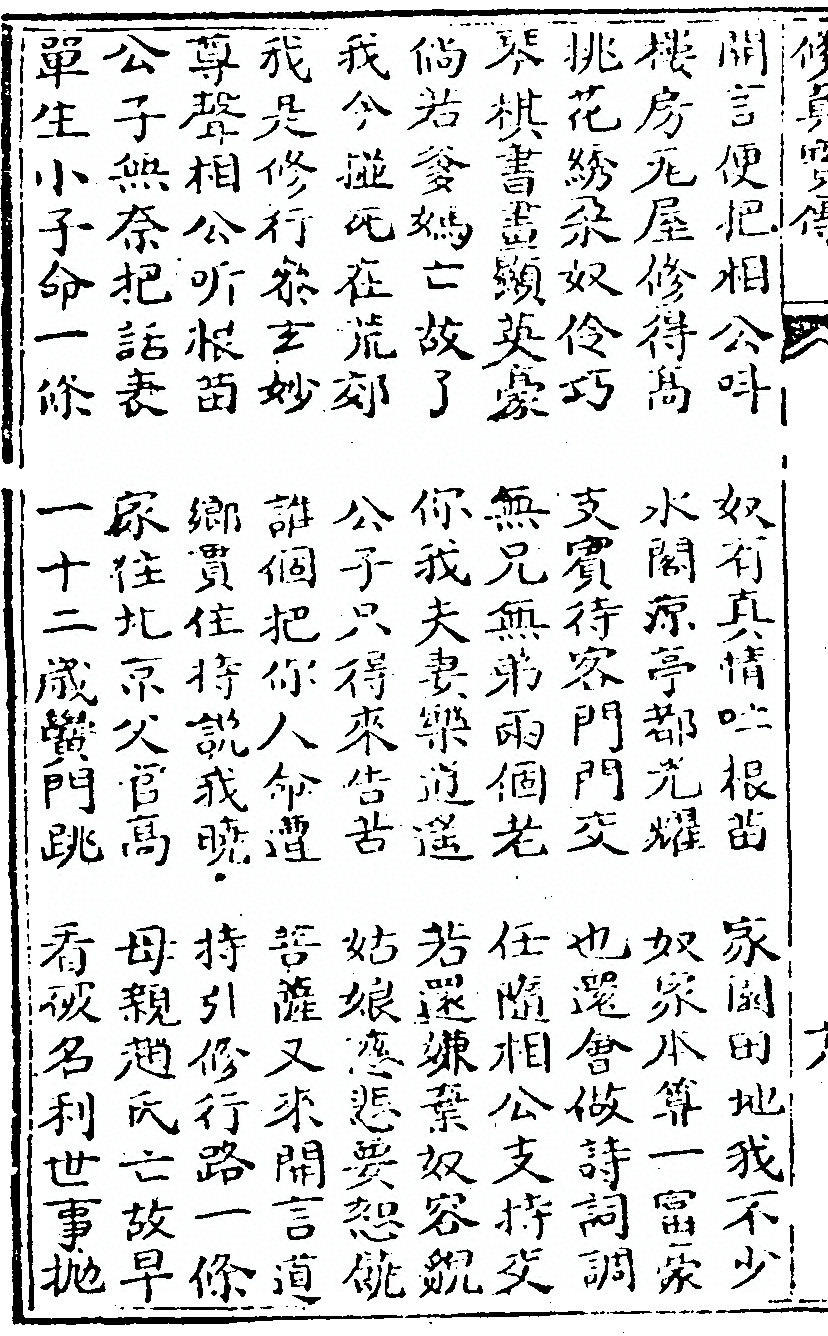 修真寶傳
開言便把相公呌　奴有真情吐根苗　家園田地我不少
樓房瓦屋修得高　水閣凉亭都光耀　奴家本算一富豪
挑花綉朶奴伶巧　支賓待客門門交　也還會做詩詞調
琴棋書畫顯英豪　無兄無弟兩個老　任隨相公支持交
倘若爹媽亡故了　你我夫妻樂逍遥　若還嫌棄奴容貌
我今碰死在荒郊　公子只得來告苦　姑娘慈悲要恕饒
我是修行叅玄妙　誰個把你人命遭　菩薩又來開言道
尊聲相公听根苗　鄉貫住持說我曉　持引修行路一條
公子無奈把話表　家住北京父官高　母親趙氏亡故早
單生小子命一條　一十二歲黌門跳　看破名利世事抛